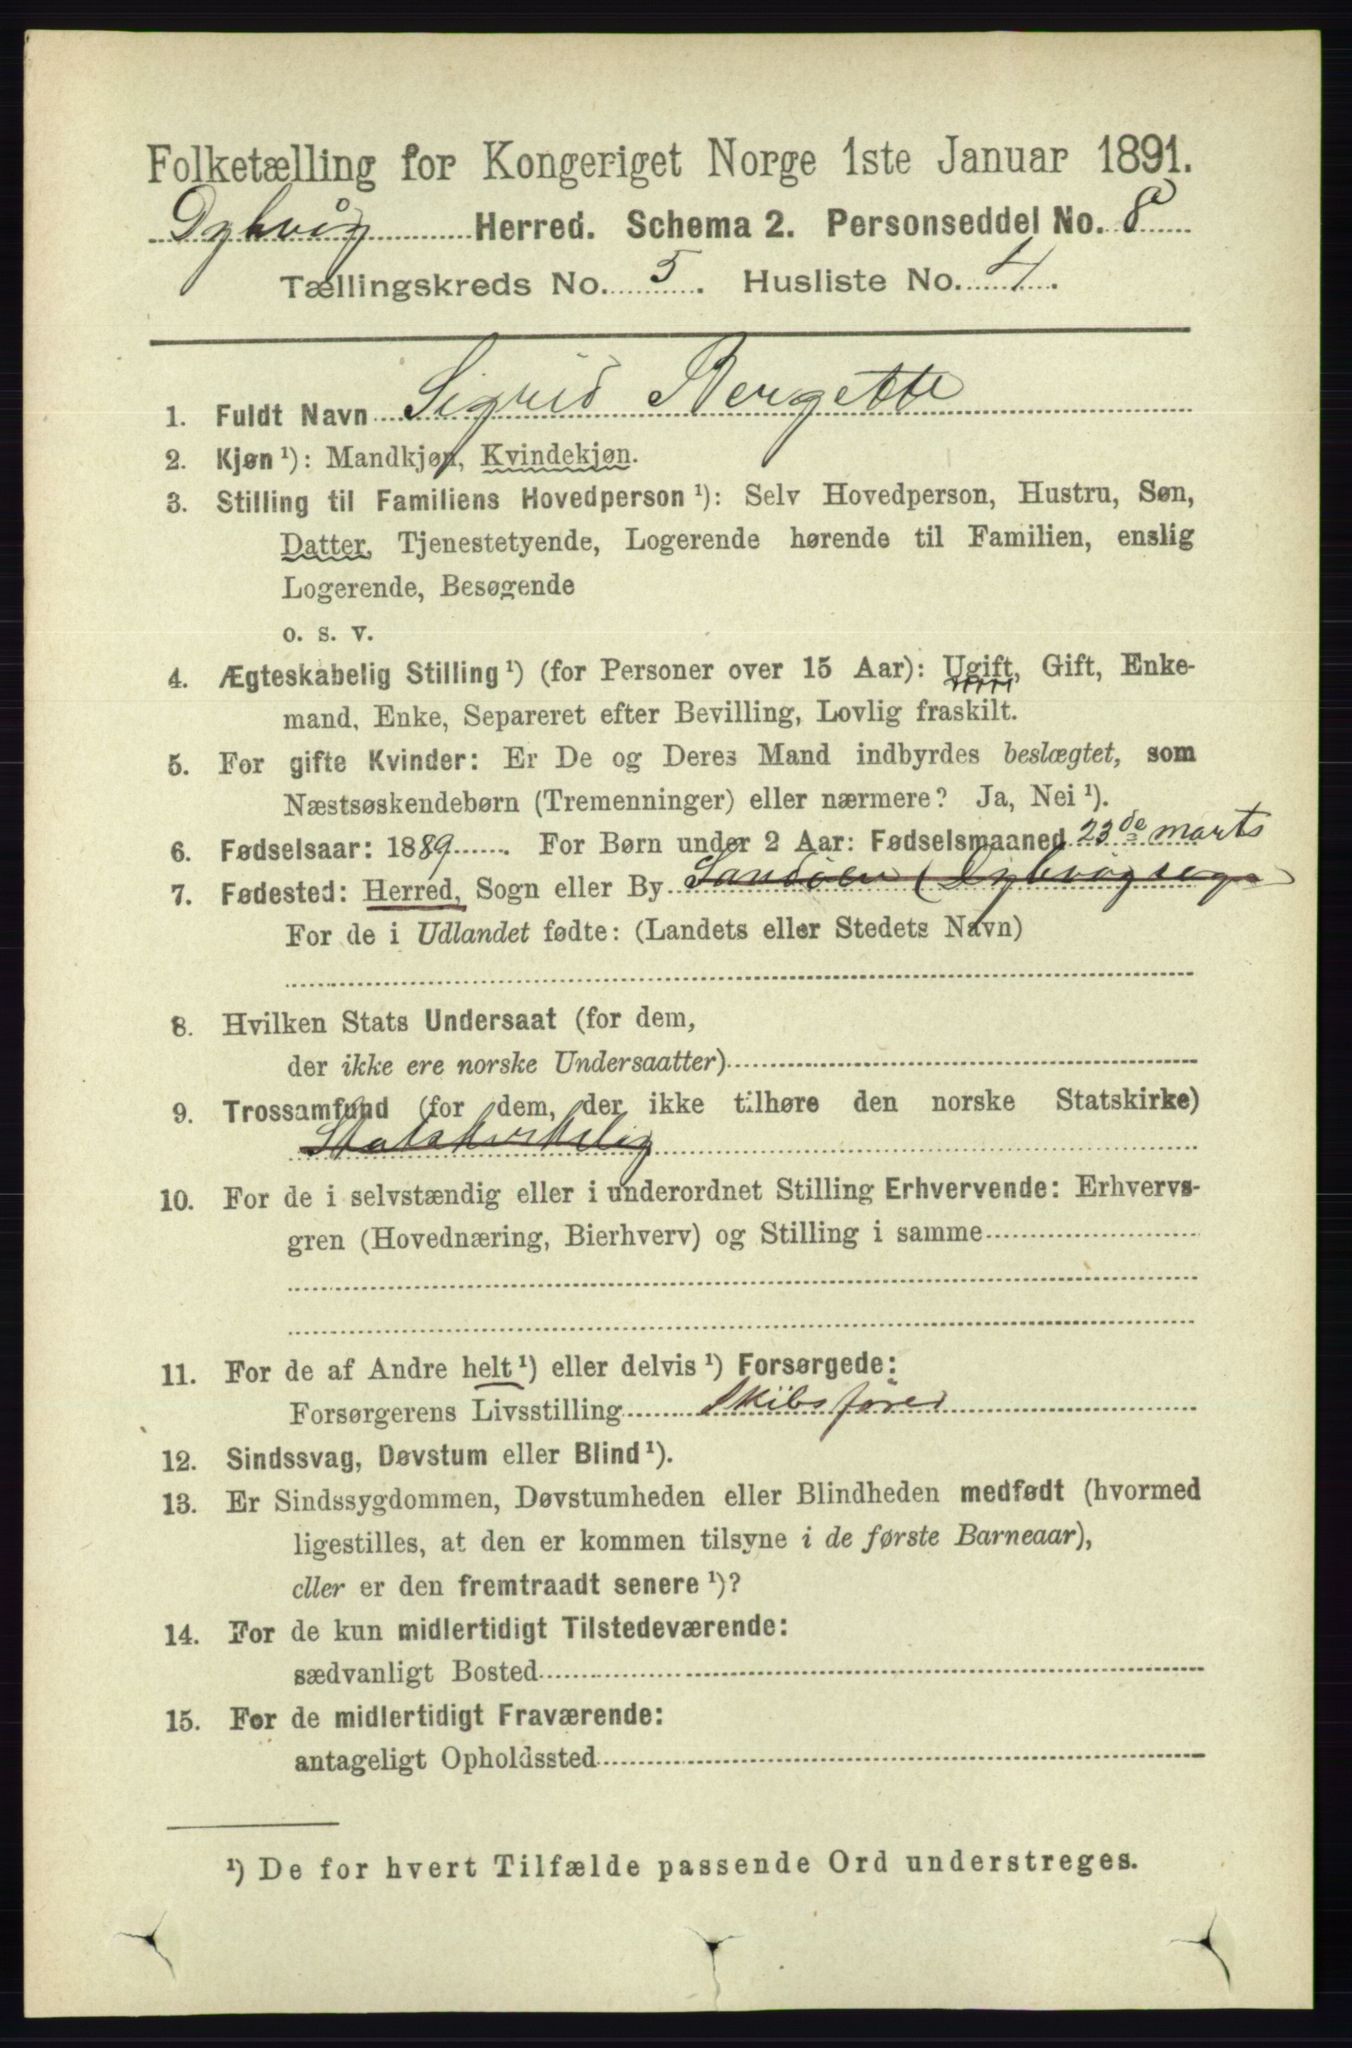 Folketælling for Kongeriget Norge 1ste Januar 1891.
Dybvåg Herred. Schema 2. Personseddel No. 8
Tællingskreds No. 5. Husliste No. 4.
1. Fuldt Navn Sigrid Bergette
2. Kjøn ¹): Mandkjøn, Kvindekjøn.
3. Stilling til Familiens Hovedperson ¹): Selv Hovedperson, Hustru, Søn,
Datter, Tjenestetyende, Logerende hørende til Familien, enslig
Logerende, Besøgende
o. s. v.
4. Ægteskabelig Stilling ¹) (for Personer over 15 Aar): Ugift, Gift, Enke-
mand, Enke, Separeret efter Bevilling, Lovlig fraskilt.
5. For gifte Kvinder: Er De og Deres Mand indbyrdes beslægtet, som
Næstsøskendebørn (Tremenninger) eller nærmere? Ja, Nei ¹).
6. Fødselsaar: 1889. For Børn under 2 Aar: Fødselsmaaned 23de marts
7. Fødested: Herred, Sogn eller By Sandøen (Dybvåg sogn
For de i Udlandet fødte: (Landets eller Stedets Navn)
8. Hvilken Stats Undersaat (for dem,
der ikke ere norske Undersaatter)
9. Trossamfund (for dem, der ikke tilhøre den norske Statskirke)
Statskirkelig
10. For de i selvstændig eller i underordnet Stilling Erhvervende: Erhvervs-
gren (Hovednæring, Bierhverv) og Stilling i samme
11. For de af Andre helt ¹) eller delvis ¹) Forsørgede:
Forsørgerens Livsstilling Skibsfører
12. Sindssvag, Døvstum eller Blind ¹).
13. Er Sindssygdommen, Døvstumheden eller Blindheden medfødt (hvormed
ligestilles, at den er kommen tilsyne i de første Barneaar),
eller er den fremtraadt senere ¹)?
14. For de kun midlertidigt Tilstedeværende:
sædvanligt Bosted
15. For de midlertidigt Fraværende:
antageligt Opholdssted
¹) De for hvert Tilfælde passende Ord understreges.